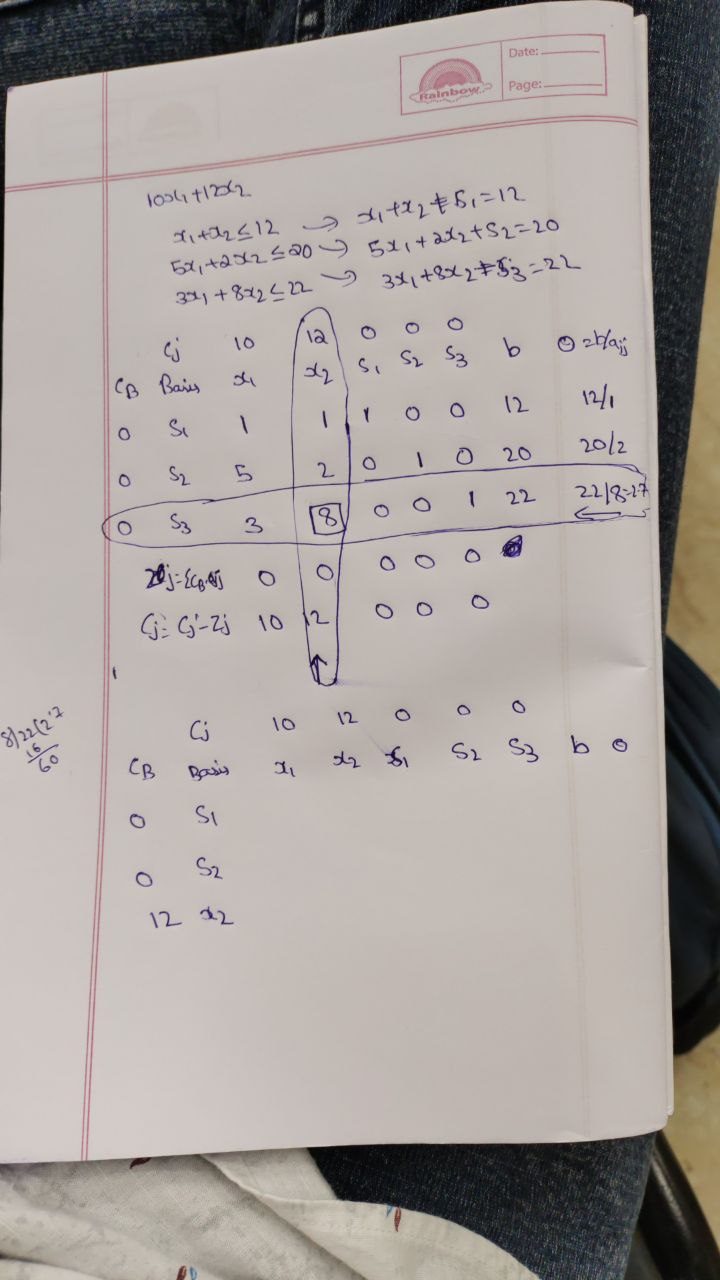 Rainbow
Date:
Page:
10x1+12x2
x1+x2≤12 → x1+x2+S1=12
5x1+2x2≤20 → 5x1+2x2+S2=20
3x1+8x2≤22 → 3x1+8x2+S3=22
Cj 10 12 0 0 0
CB Basis x1 x2 S1 S2 S3 b θ=b/aij
0 S1 1 1 1 0 0 12 12/1
0 S2 5 2 0 1 0 20 20/2
0 S3 3 8 0 0 1 22 22/8=2.7
0 0 0 0 0
Cj=Cj-Zj 10 12 0 0 0
8)22(2.7
16
60
Cj 10 12 0 0 0
CB Basis x1 x2 S1 S2 S3 b θ
0 S1
0 S2
12 x2